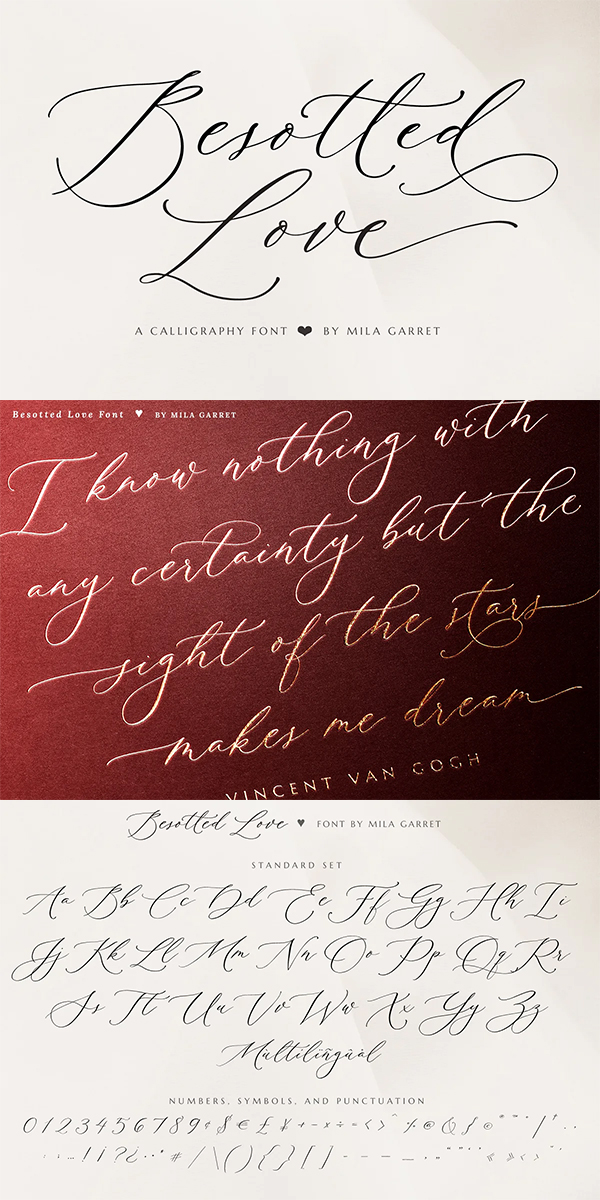 Besotted
Love
A CALLIGRAPHY FONT ❤ BY MILA GARRET
Besotted Love Font ♥ BY MILA GARRET
I know nothing with
any certainty but the
sight of the stars
makes me dream
VINCENT VAN GOGH
Besotted Love ♥ FONT BY MILA GARRET
STANDARD SET
Aa Bb Cc Dd Ee Ff Gg Hh Ii
Jj Kk Ll Mm Nn Oo Pp Qq Rr
Ss Tt Uu Vv Ww Xx Yy Zz
Múltilïñgüàl
NUMBERS, SYMBOLS, AND PUNCTUATION
0123456789¢$€£¥+-x÷=<>^
!¡?¿ # / \ ( ) { } [ ]